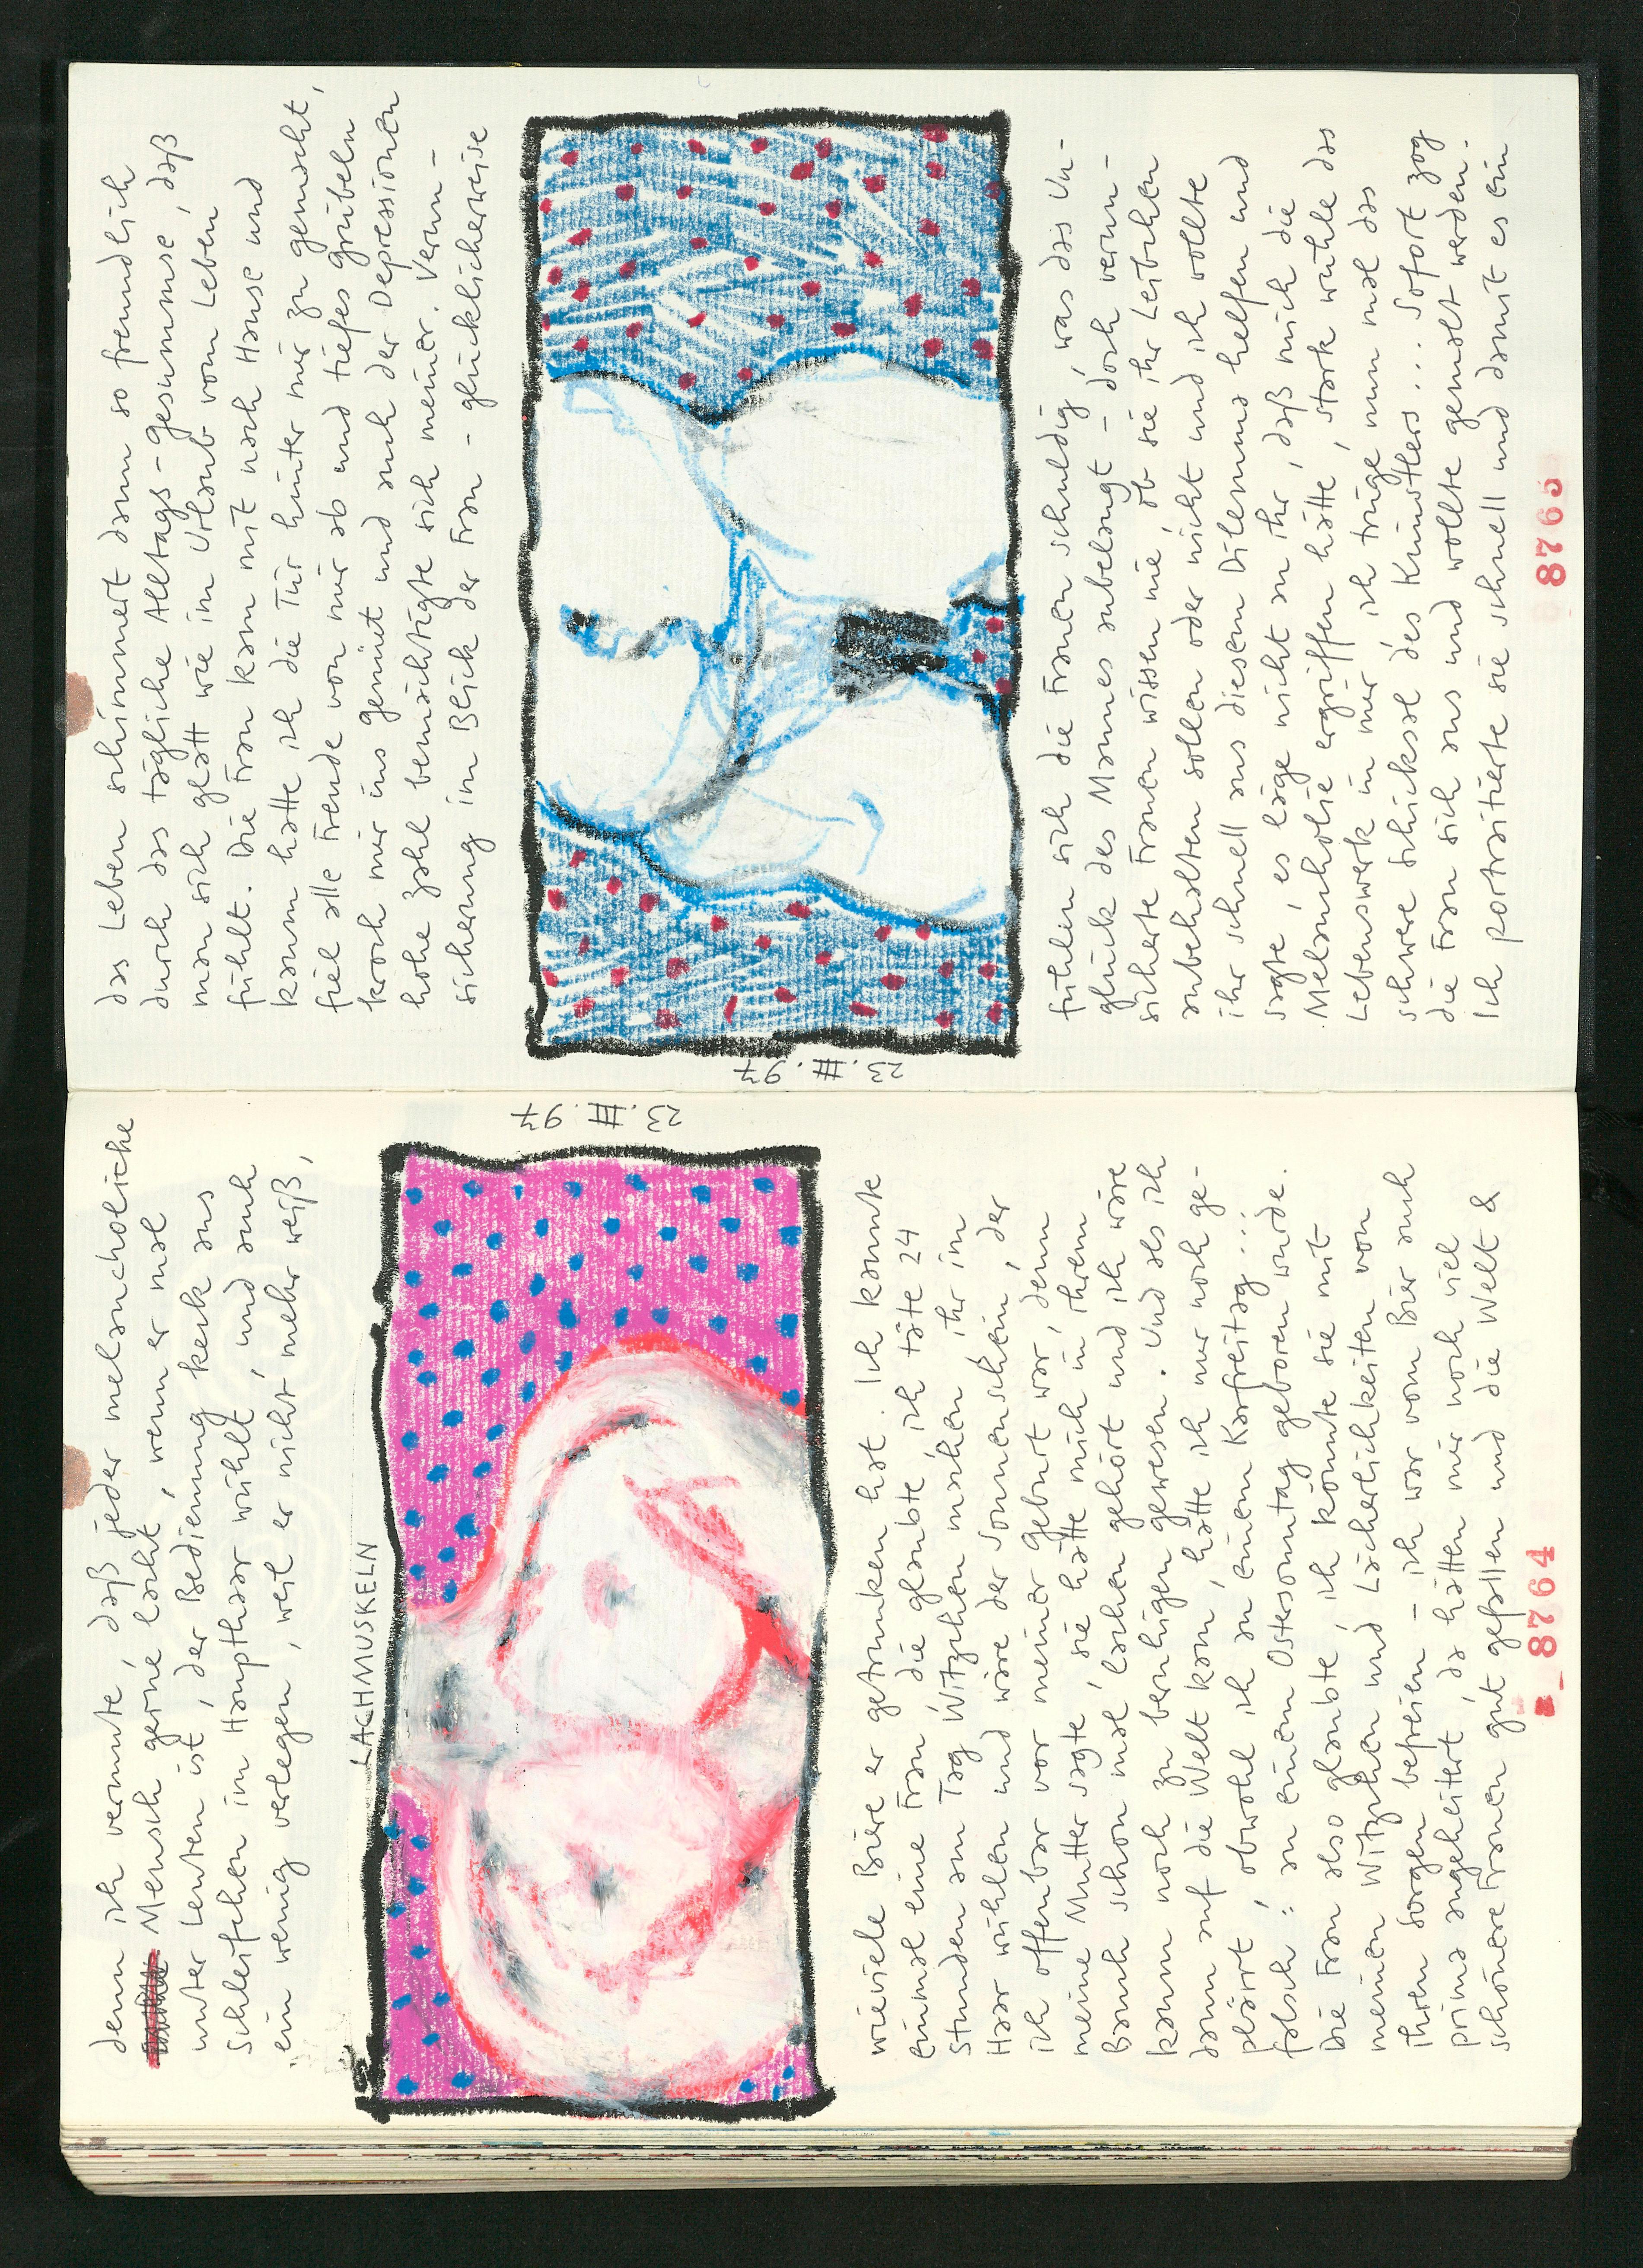 denn ich vermute, daß jeder melancholische
Mensch gerne lacht, wenn er mal
unter Leuten ist, der Bedienung keck ans
Schleifchen im Haupthaar wühlt, und auch
ein wenig verlegen, weil er nicht mehr weiß,
LACHMUSKELN
23.III.97
wieviele Biere er getrunken hat. Ich kannte
einmal eine Frau, die glaubte, ich täte 24
Stunden am Tag Witzchen machen, ihr im
Haar wühlen und wäre der Sonnenschein, der
ich offenbar vor meiner Geburt war, denn
meine Mutter sagte, sie hätte mich in ihrem
Bauch schon mal lachen gehört und ich wäre
kaum noch zu beruhigen gewesen. Und als ich
dann auf die Welt kam, hätte ich nur noch ge-
plärrt, obwohl ich an einem Karfreitag...
falsch: an einem Ostersonntag geboren wurde.
Die Frau also glaubte, ich könnte sie mit
meinen Witzchen und Lächerlichkeiten von
ihren Sorgen befreien – ich war vom Bier auch
prima angeheitert, da hätten mir noch viel
schönere Frauen gut gefallen und die Welt &
8764
das Leben schimmert dann so freundlich
durch das tägliche Alltags-gesummse, daß
man sich glatt wie im Urlaub vom Leben
fühlt. Die Frau kam mit nach Hause und
kaum hatte ich die Tür hinter mir zu gemacht,
fiel alle Freude von mir ab und tiefes Grübeln
kroch mir ins Gemüt und auch der Depressionen
hohe Zahl bemächtigte sich meiner. Verun-
sicherung im Blick der Frau – glücklicherweise
23.III.97
fühlen sich die Frauen schuldig, was das Un-
glück des Mannes anbelangt – doch verun-
sicherte Frauen wissen nie, ob sie ihr Leibchen
anbehalten sollen oder nicht und ich wollte
ihr schnell aus diesem Dilemma helfen und
sagte, es läge nicht an ihr, daß mich die
Melancholie ergriffen hätte, stark wühle das
Lebenswerk in mir, ich trüge nun mal das
schwere Schicksal des Künstlers... Sofort zog
die Frau sich aus und wollte gemalt werden.
Ich porträtierte sie schnell und damit es ein
8765